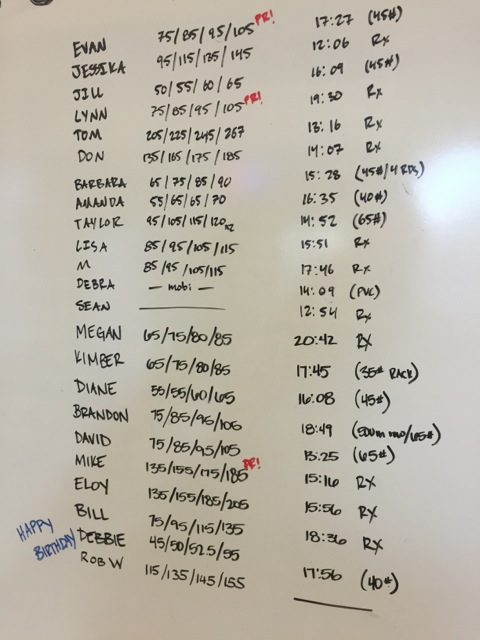 EVAN 75/85/95/105 PR! 17:27 (45#)
JESSIKA 95/115/135/145 12:06 Rx
JILL 50/55/60/65 16:09 (45#)
LYNN 75/85/95/105 PR! 19:30 Rx
TOM 205/225/245/267 13:16 Rx
DON 135/165/175/185 14:07 Rx
BARBARA 65/75/85/90 15:28 (45#/4 RDS)
AMANDA 55/65/65/70 16:35 (40#)
TAYLOR 95/105/115/120x2 14:52 (65#)
LISA 85/95/105/115 15:51 Rx
M 85/95/105/115 17:46 Rx
DEBRA — mobi — 14:09 (PVC)
SEAN 12:54 Rx
MEGAN 65/75/80/85 20:42 RX
KIMBER 65/75/80/85 17:45 (35# RACK)
DIANE 55/55/60/65 16:08 (45#)
BRANDON 75/85/95/105 18:49 (500m row/65#)
DAVID 75/85/95/105 13:25 (65#)
MIKE 135/155/175/185 PR! 15:16 RX
ELOY 135/155/185/205 15:56 RX
BILL 75/95/115/135 18:36 RX
HAPPY BIRTHDAY DEBBIE 45/50/52.5/55 17:56 (40#)
ROB W 115/135/145/155